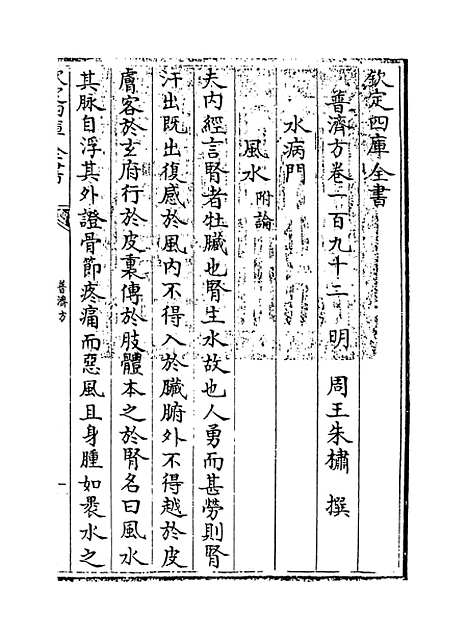 欽定四庫全書
普濟方卷一百九十二　明　周王朱橚　撰
水病門
風水附論
夫内經言腎者牡臟也腎生水故也人勇而甚勞則腎
汗出既出復感於風内不得入於臟腑外不得越於皮
膚客於玄府行於皮裏傳於肢體本之於腎名曰風水
其脉自浮其外證骨節疼痛而惡風且身腫如褁水之
普濟方
一